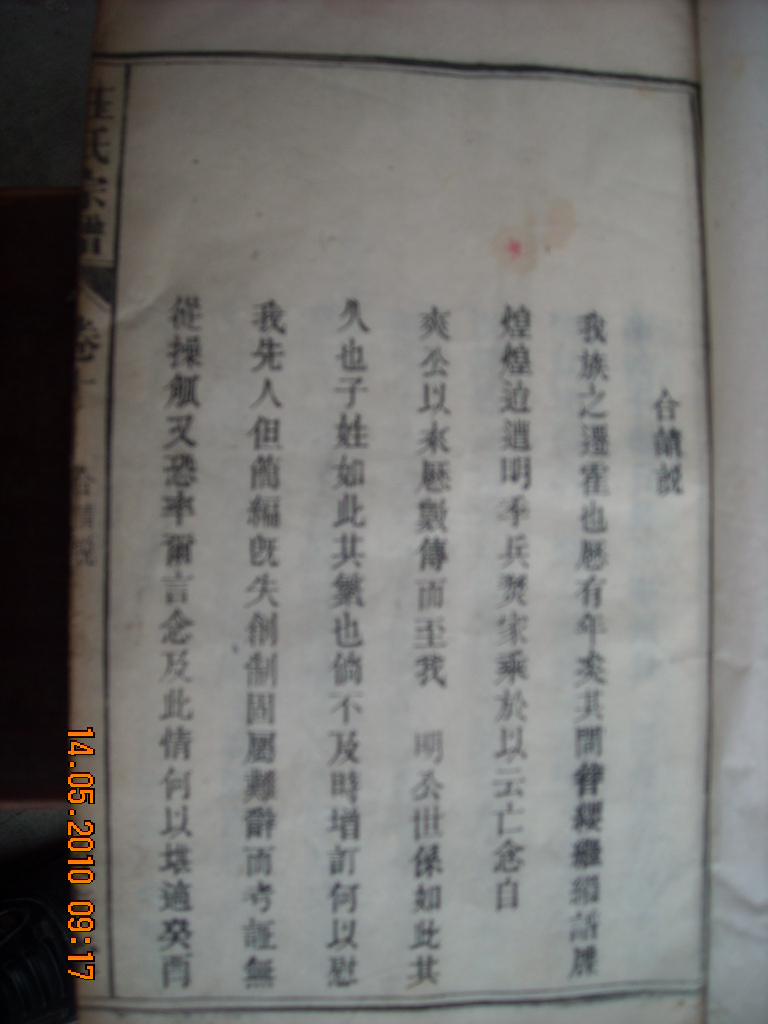 合譜說
我族之遷霍也歷有年矣其間簪纓繼紹話牒
煌煌迨遭明季兵燹家乘於以云亡念自
爽公以來歷數傳而至我 明公世係如此其
久也子姓如此其繁也倘不及時增訂何以慰
我先人但舊編旣失創制固屬難辭而考証無
從操觚又恐率爾言念及此情何以堪適癸酉
氏宗譜 卷 合譜說
14.05.2010 09:17